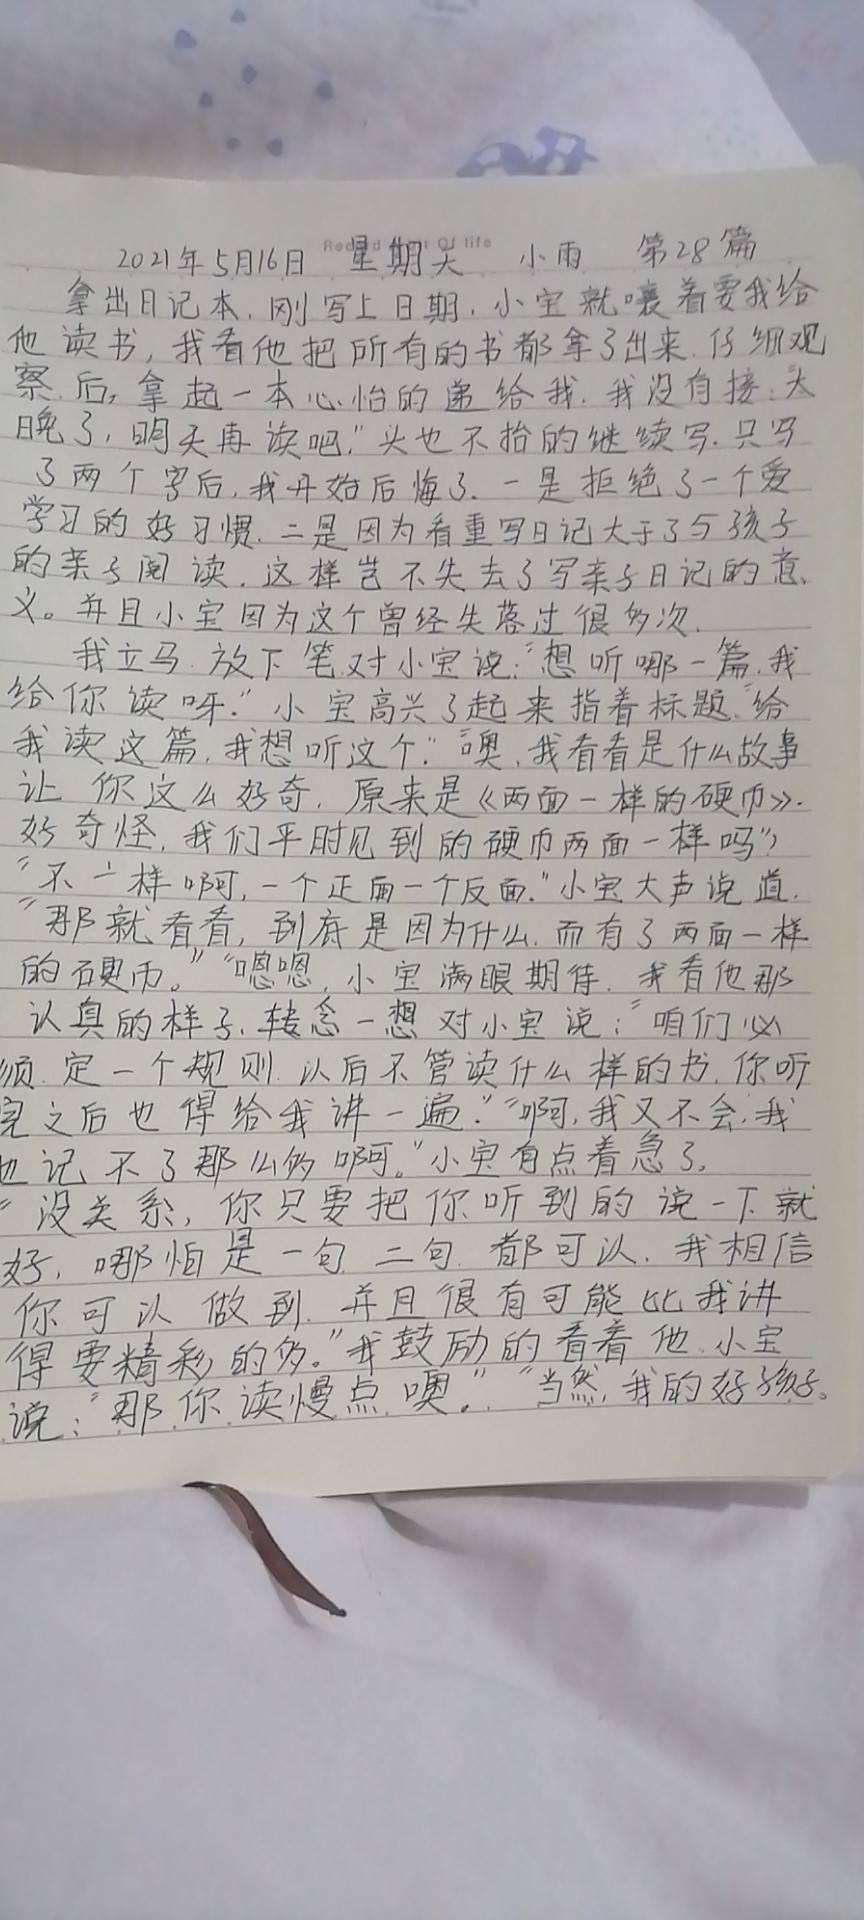 2021年5月16日 星期天 小雨 第28篇
拿出日记本,刚写上日期,小宝就嚷着要我给
他读书,我看他把所有的书都拿了出来,仔细观
察后,拿起一本心怡的递给我,我没有接:"太
晚了,明天再读吧."头也不抬的继续写.只写
了两个字后,我开始后悔了.一是拒绝了一个爱
学习的好习惯.二是因为看重写日记大于了与孩子
的亲子阅读.这样岂不失去了写亲子日记的意
义。并且小宝因为这个曾经失落过很多次.
我立马放下笔对小宝说:"想听哪一篇,我
给你读呀."小宝高兴了起来指着标题"给
我读这篇,我想听这个.""噢,我看看是什么故事
让你这么好奇,原来是《两面一样的硬币》.
好奇怪,我们平时见到的硬币两面一样吗"?
"不一样啊,一个正面一个反面."小宝大声说道.
"那就看看,到底是因为什么,而有了两面一样
的硬币。""嗯嗯,小宝满眼期待.我看他那
认真的样子,转念一想对小宝说:"咱们必
须定一个规则.以后不管读什么样的书,你听
完之后也得给我讲一遍.""啊,我又不会,我
也记不了那么多啊。"小宝有点着急了.
"没关系,你只要把你听到的说一下就
好,哪怕是一句二句都可以.我相信
你可以做到.并且很有可能比我讲
得要精彩的多。"我鼓励的看着他,小宝
说:"那你读慢点噢。""当然,我的好孩子。